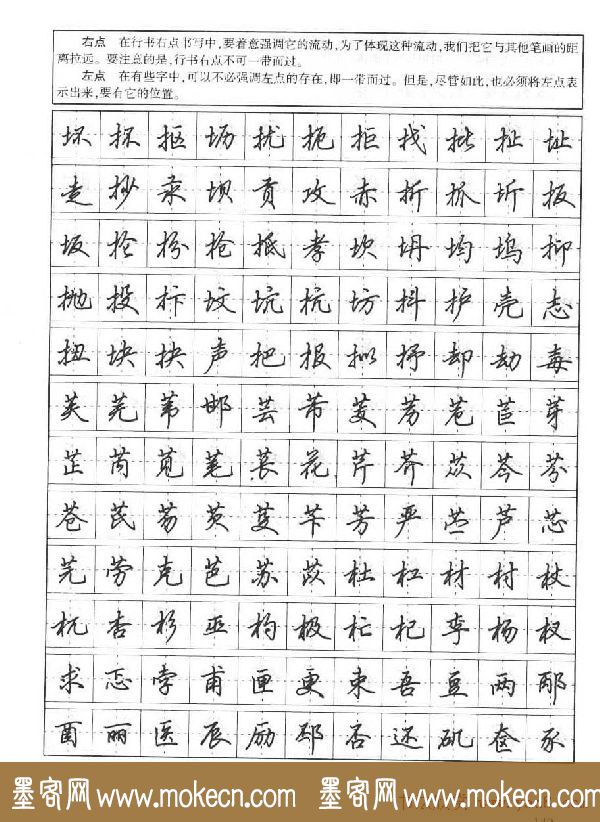 右点 在行书右点书写中,要着意强调它的流动,为了体现这种流动,我们把它与其他笔画的距
离拉远。要注意的是,行书右点不可一带而过。
左点 在有些字中,可以不必强调左点的存在,即一带而过。但是,尽管如此,也必须将左点表
示出来,要有它的位置。
坏 抠 坜 扰 扼 拒 找 批 扯 址
走 抄 汞 坝 贡 攻 赤 折 抓 圻 扳
坂 抡 扮 抢 抵 孝 坎 坍 均 坞 抑
抛 投 抃 坟 坑 抗 坊 抖 护 壳 志
扭 块 抉 声 把 报 拟 抒 却 劫 毒
芙 芜 苇 邯 芸 芾 芰 苈 苊 苣 芽
芷 芮 苋 芼 苌 花 芹 芥 苁 芩 芬
苍 芪 芴 芡 芟 苄 芳 严 芦 芯
劳 克 芭 苏 苡 杜 杠 材 村 杖
杌 杏 杉 巫 杓 极 杧 杞 李 杨 杈
求 忑 孛 甫 匣 更 束 吾 豆 两 邴
酉 丽 医 辰 励 邳 否 还 矶 奁 豕
墨客网 www.mokecn.com 墨客网 www.mokecn.com